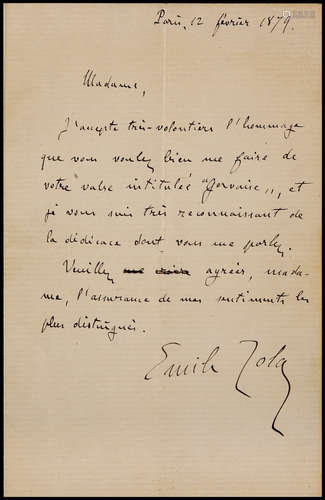 Paris, 12 février 1879.
Madame,
J'accepte très-volontiers l'hommage
que vous voulez bien me faire de
votre valse intitulée "Gervaise", et
je vous suis très reconnaissant de
la dédicace dont vous me parlez.
Veuillez agréer, mada-
me, l'assurance de mes sentiments les
plus distingués.
Emile Zola